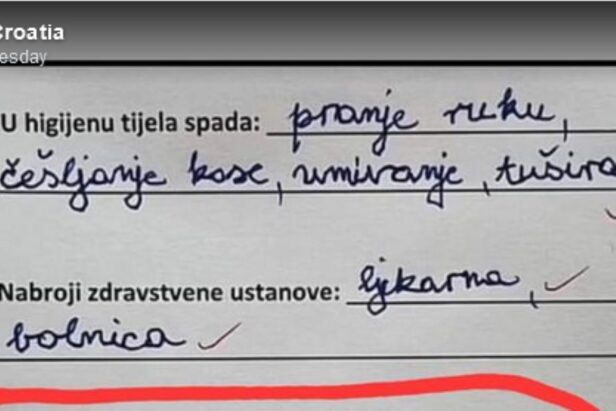 Croatia
esday
U higijenu tijela spada: pranje ruku,
češljanje kose, umivanje, tušira
Nabroji zdravstvene ustanove: ljekarna,
bolnica